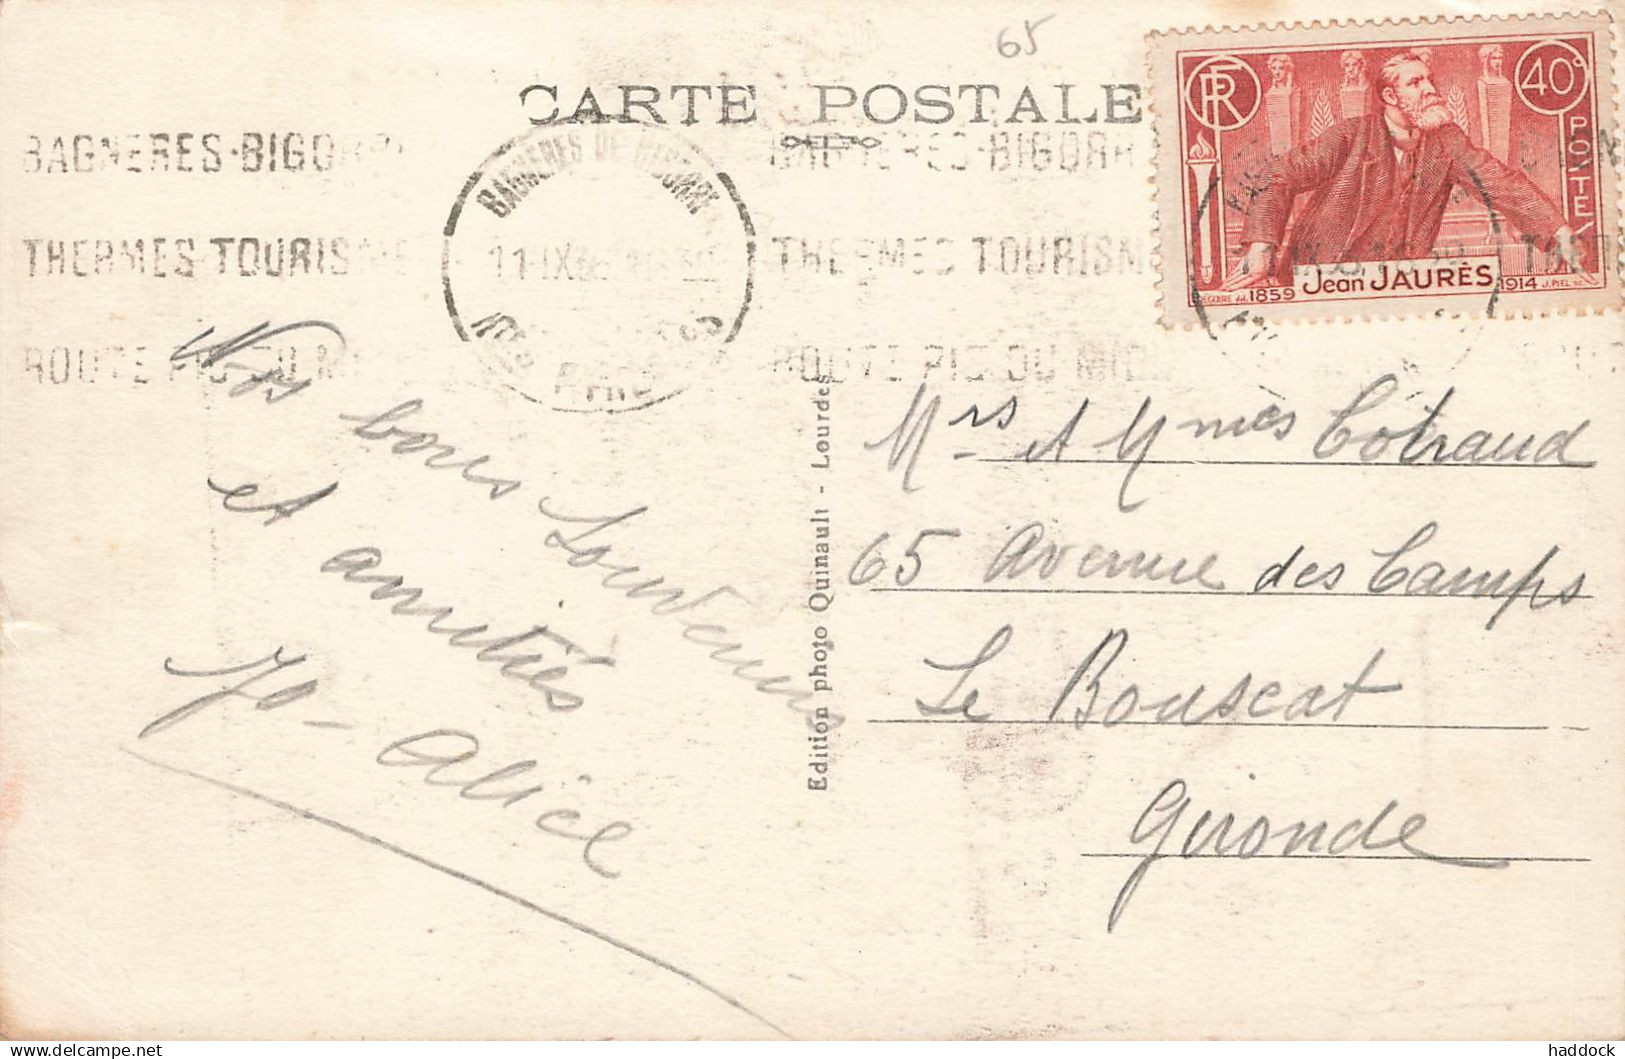 65
CARTE POSTALE
RF
40c
POSTES
Jean JAURÈS
1859
1914
J. PIEL sc.
BAGNERES-BIGORRE
THERMES TOURISME
ROUTE PIC DU MIDI
BAGNERES DE BIGORRE
11-IX 36 16 30
HTES PYRENEES
BAGNERES-BIGORR
THERMES TOURISM
ROUTE PIC DU MIDI
THER
Nos bons souvenirs
et amitiés
Jo - Alice
Edition photo Quinault - Lourdes
Mrs et Mmes Cotraud
65 Avenue des Camps
Le Bouscat
Gironde
delcampe.net
haddock